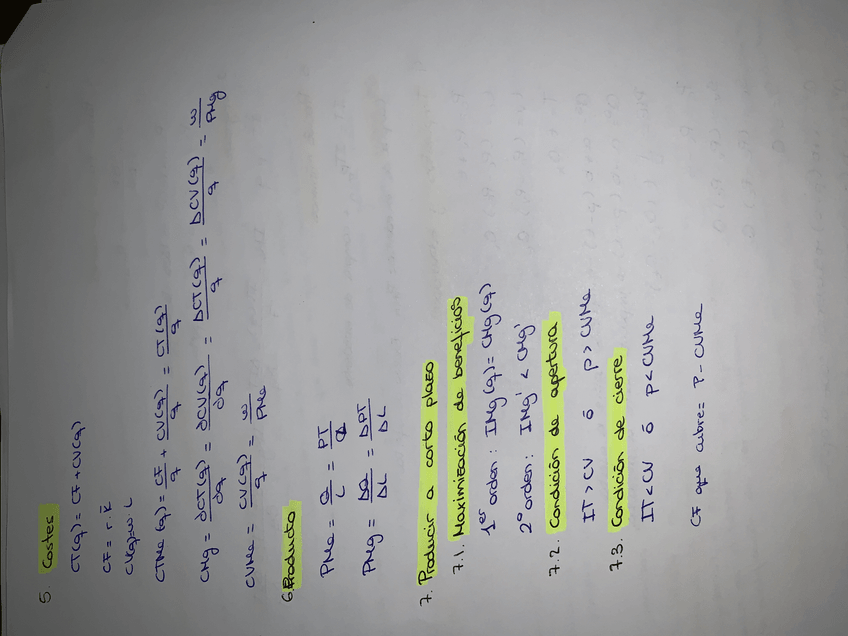 5. Costes
CT(q) = CF + CV(q)
CF = r·k̄
CV(q)=w·L
CTMe(q) = CF/q + CV(q)/q = CT(q)/q
CMg = ∂CT(q)/∂q = ∂CV(q)/∂q = ΔCT(q)/q = ΔCV(q)/q = w/PMg
CVMe = CV(q)/q = w/PMe
6. Producto
PMe = Q/L = PT/L
PMg = ΔQ/ΔL = ΔPT/ΔL
7. Producir a corto plazo
7.1. Maximización de beneficios
1er orden: IMg(q) = CMg(q)
2º orden: IMg' < CMg'
7.2. Condición de apertura
IT > CV ó p > CVMe
7.3. Condición de cierre
IT < CV ó p < CVMe
CF que cubre = P - CVMe